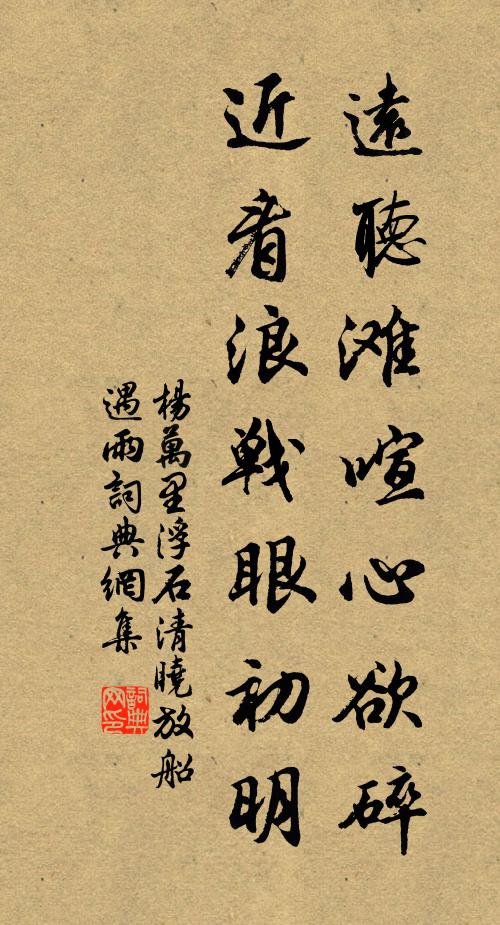 遠聽滩喧心欲碎
近看浪戰眼初明
楊萬里浮石清曉放船
遇雨詞典網集
詞典网印